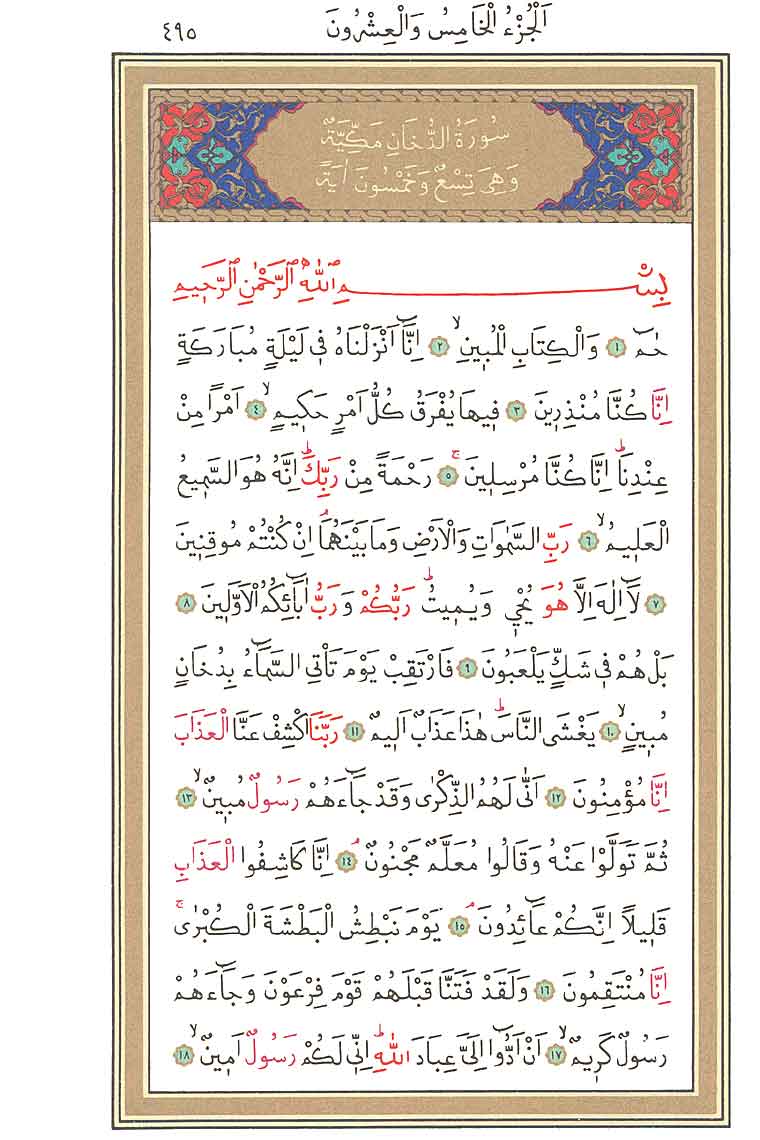 اَلْجُزْءُ الْخَامِسُ وَالْعِشْرُونَ ٤٩٥
سُورَةُ الدُّخَانِ مَكِّيَّةٌ
وَهِيَ تِسْعٌ وَخَمْسُونَ اٰيَةً
بِسْمِ اللّٰهِ الرَّحْمٰنِ الرَّحٖيمِ
حٰمٓ ١ وَالْكِتَابِ الْمُبٖينِۙ ٢ اِنَّٓا اَنْزَلْنَاهُ فٖي لَيْلَةٍ مُبَارَكَةٍ
اِنَّا كُنَّا مُنْذِرٖينَ ٣ فٖيهَا يُفْرَقُ كُلُّ اَمْرٍ حَكٖيمٍۙ ٤ اَمْرًا مِنْ
عِنْدِنَاؕ اِنَّا كُنَّا مُرْسِلٖينَۚ ٥ رَحْمَةً مِنْ رَبِّكَؕ اِنَّهُ هُوَ السَّمٖيعُ
الْعَلٖيمُۙ ٦ رَبِّ السَّمٰوَاتِ وَالْاَرْضِ وَمَا بَيْنَهُمَاۢ اِنْ كُنْتُمْ مُوقِنٖينَ
٧ لَٓا اِلٰهَ اِلَّا هُوَ يُحْيٖي وَيُمٖيتُؕ رَبُّكُمْ وَرَبُّ اٰبَٓائِكُمُ الْاَوَّلٖينَ ٨
بَلْ هُمْ فٖي شَكٍّ يَلْعَبُونَ ٩ فَارْتَقِبْ يَوْمَ تَأْتِي السَّمَٓاءُ بِدُخَانٍ
مُبٖينٍۙ ١٠ يَغْشَى النَّاسَؕ هٰذَا عَذَابٌ اَلٖيمٌ ١١ رَبَّنَا اكْشِفْ عَنَّا الْعَذَابَ
اِنَّا مُؤْمِنُونَ ١٢ اَنّٰى لَهُمُ الذِّكْرٰى وَقَدْ جَٓاءَهُمْ رَسُولٌ مُبٖينٌۙ ١٣
ثُمَّ تَوَلَّوْا عَنْهُ وَقَالُوا مُعَلَّمٌ مَجْنُونٌۢ ١٤ اِنَّا كَاشِفُوا الْعَذَابِ
قَلٖيلًا اِنَّكُمْ عَٓائِدُونَۢ ١٥ يَوْمَ نَبْطِشُ الْبَطْشَةَ الْكُبْرٰىۚ
اِنَّا مُنْتَقِمُونَ ١٦ وَلَقَدْ فَتَنَّا قَبْلَهُمْ قَوْمَ فِرْعَوْنَ وَجَٓاءَهُمْ
رَسُولٌ كَرٖيمٌۙ ١٧ اَنْ اَدُّٓوا اِلَيَّ عِبَادَ اللّٰهِؕ اِنّٖي لَكُمْ رَسُولٌ اَمٖينٌۙ ١٨